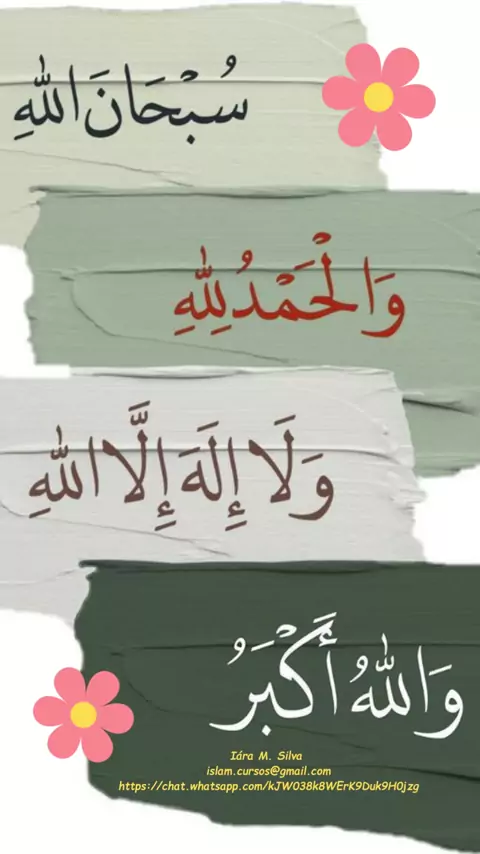 سُبْحَانَ اللهِ
وَالْحَمْدُ لِلهِ
وَلَا إِلَهَ إِلَّا اللهِ
وَاللهُ أَكْبَرُ
Iára M. Silva
islam.cursos@gmail.com
https://chat.whatsapp.com/kJW038k8WErK9Duk9H0jzg